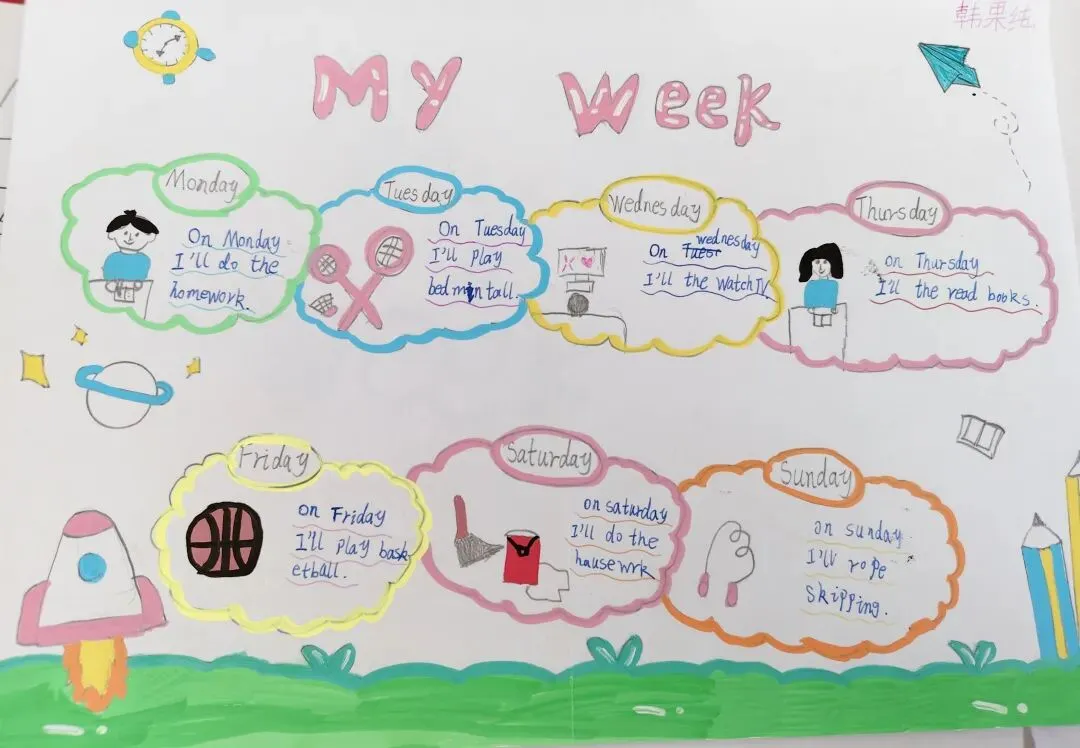 韩果纯
My Week
Monday
On Monday
I'll do the
homework.
Tuesday
On Tuesday
I'll play
bedmintall.
Wednesday
On wednesday
I'll the watch TV.
Thursday
on Thursday
I'll the read books.
Friday
on Friday
I'll play bask
etball.
Saturday
on saturday
I'll do the
hausewrk
Sunday
on sunday
I'll rope
skipping.